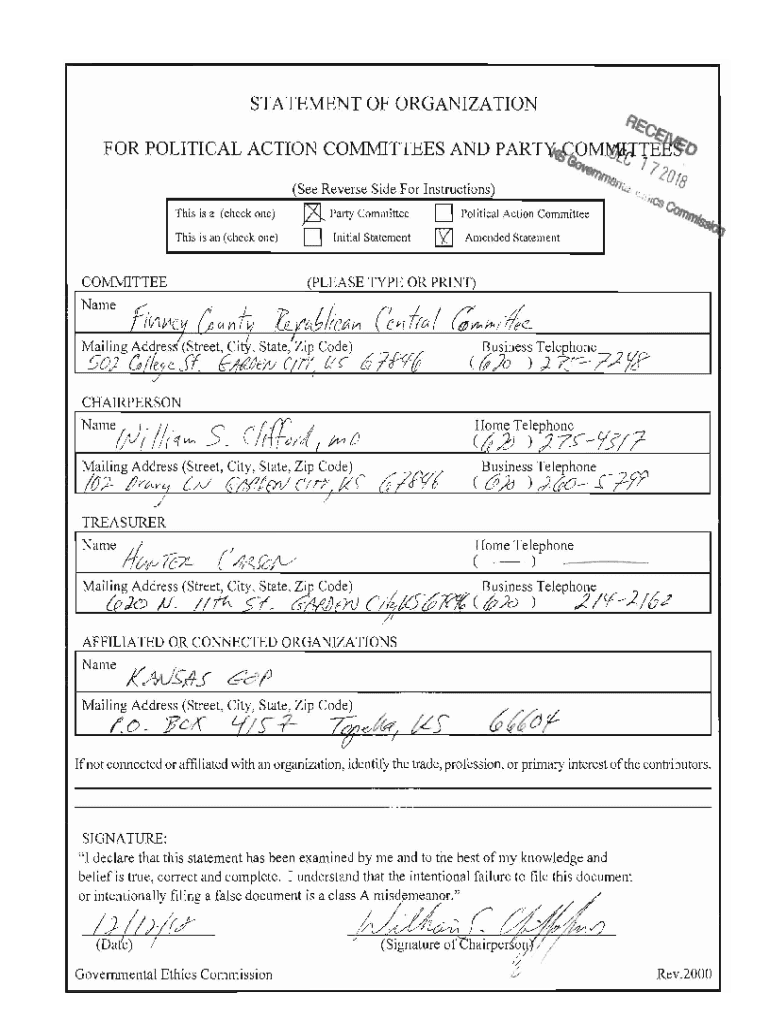 STATEMENT OF ORGANIZATION
FOR POLITICAL ACTION COMMITTEES AND PARTY COMMITTEES
RECEIVED
DEC 17 2018
KS Governmental Ethics Commission
(See Reverse Side For Instructions)
This is a (check one) Party Committee Political Action Committee
This is an (check one) Initial Statement Amended Statement
COMMITTEE (PLEASE TYPE OR PRINT)
Name Finney County Republican Central Committee
Mailing Address (Street, City, State, Zip Code) Business Telephone
502 College St. GARDEN CITY, KS 67846 (620) 7248
CHAIRPERSON
Name William S. Clifford, MD Home Telephone
(620) 275-4317
Mailing Address (Street, City, State, Zip Code) Business Telephone
102 Drury LN GARDEN CITY, KS 67846 (620) 260-5799
TREASURER
Name HUNTER CARSON Home Telephone
( — )
Mailing Address (Street, City, State, Zip Code) Business Telephone
620 N. 11th St. GARDEN City, KS 67846 (620) 214-2162
AFFILIATED OR CONNECTED ORGANIZATIONS
Name KANSAS GOP
Mailing Address (Street, City, State, Zip Code)
P.O. BOX 4157 Topeka, KS 66604
If not connected or affiliated with an organization, identify the trade, profession, or primary interest of the contributors.
SIGNATURE:
"I declare that this statement has been examined by me and to the best of my knowledge and
belief is true, correct and complete. I understand that the intentional failure to file this document
or intentionally filing a false document is a class A misdemeanor."
12/12/18 William S. Clifford
(Date) (Signature of Chairperson)
Governmental Ethics Commission Rev.2000